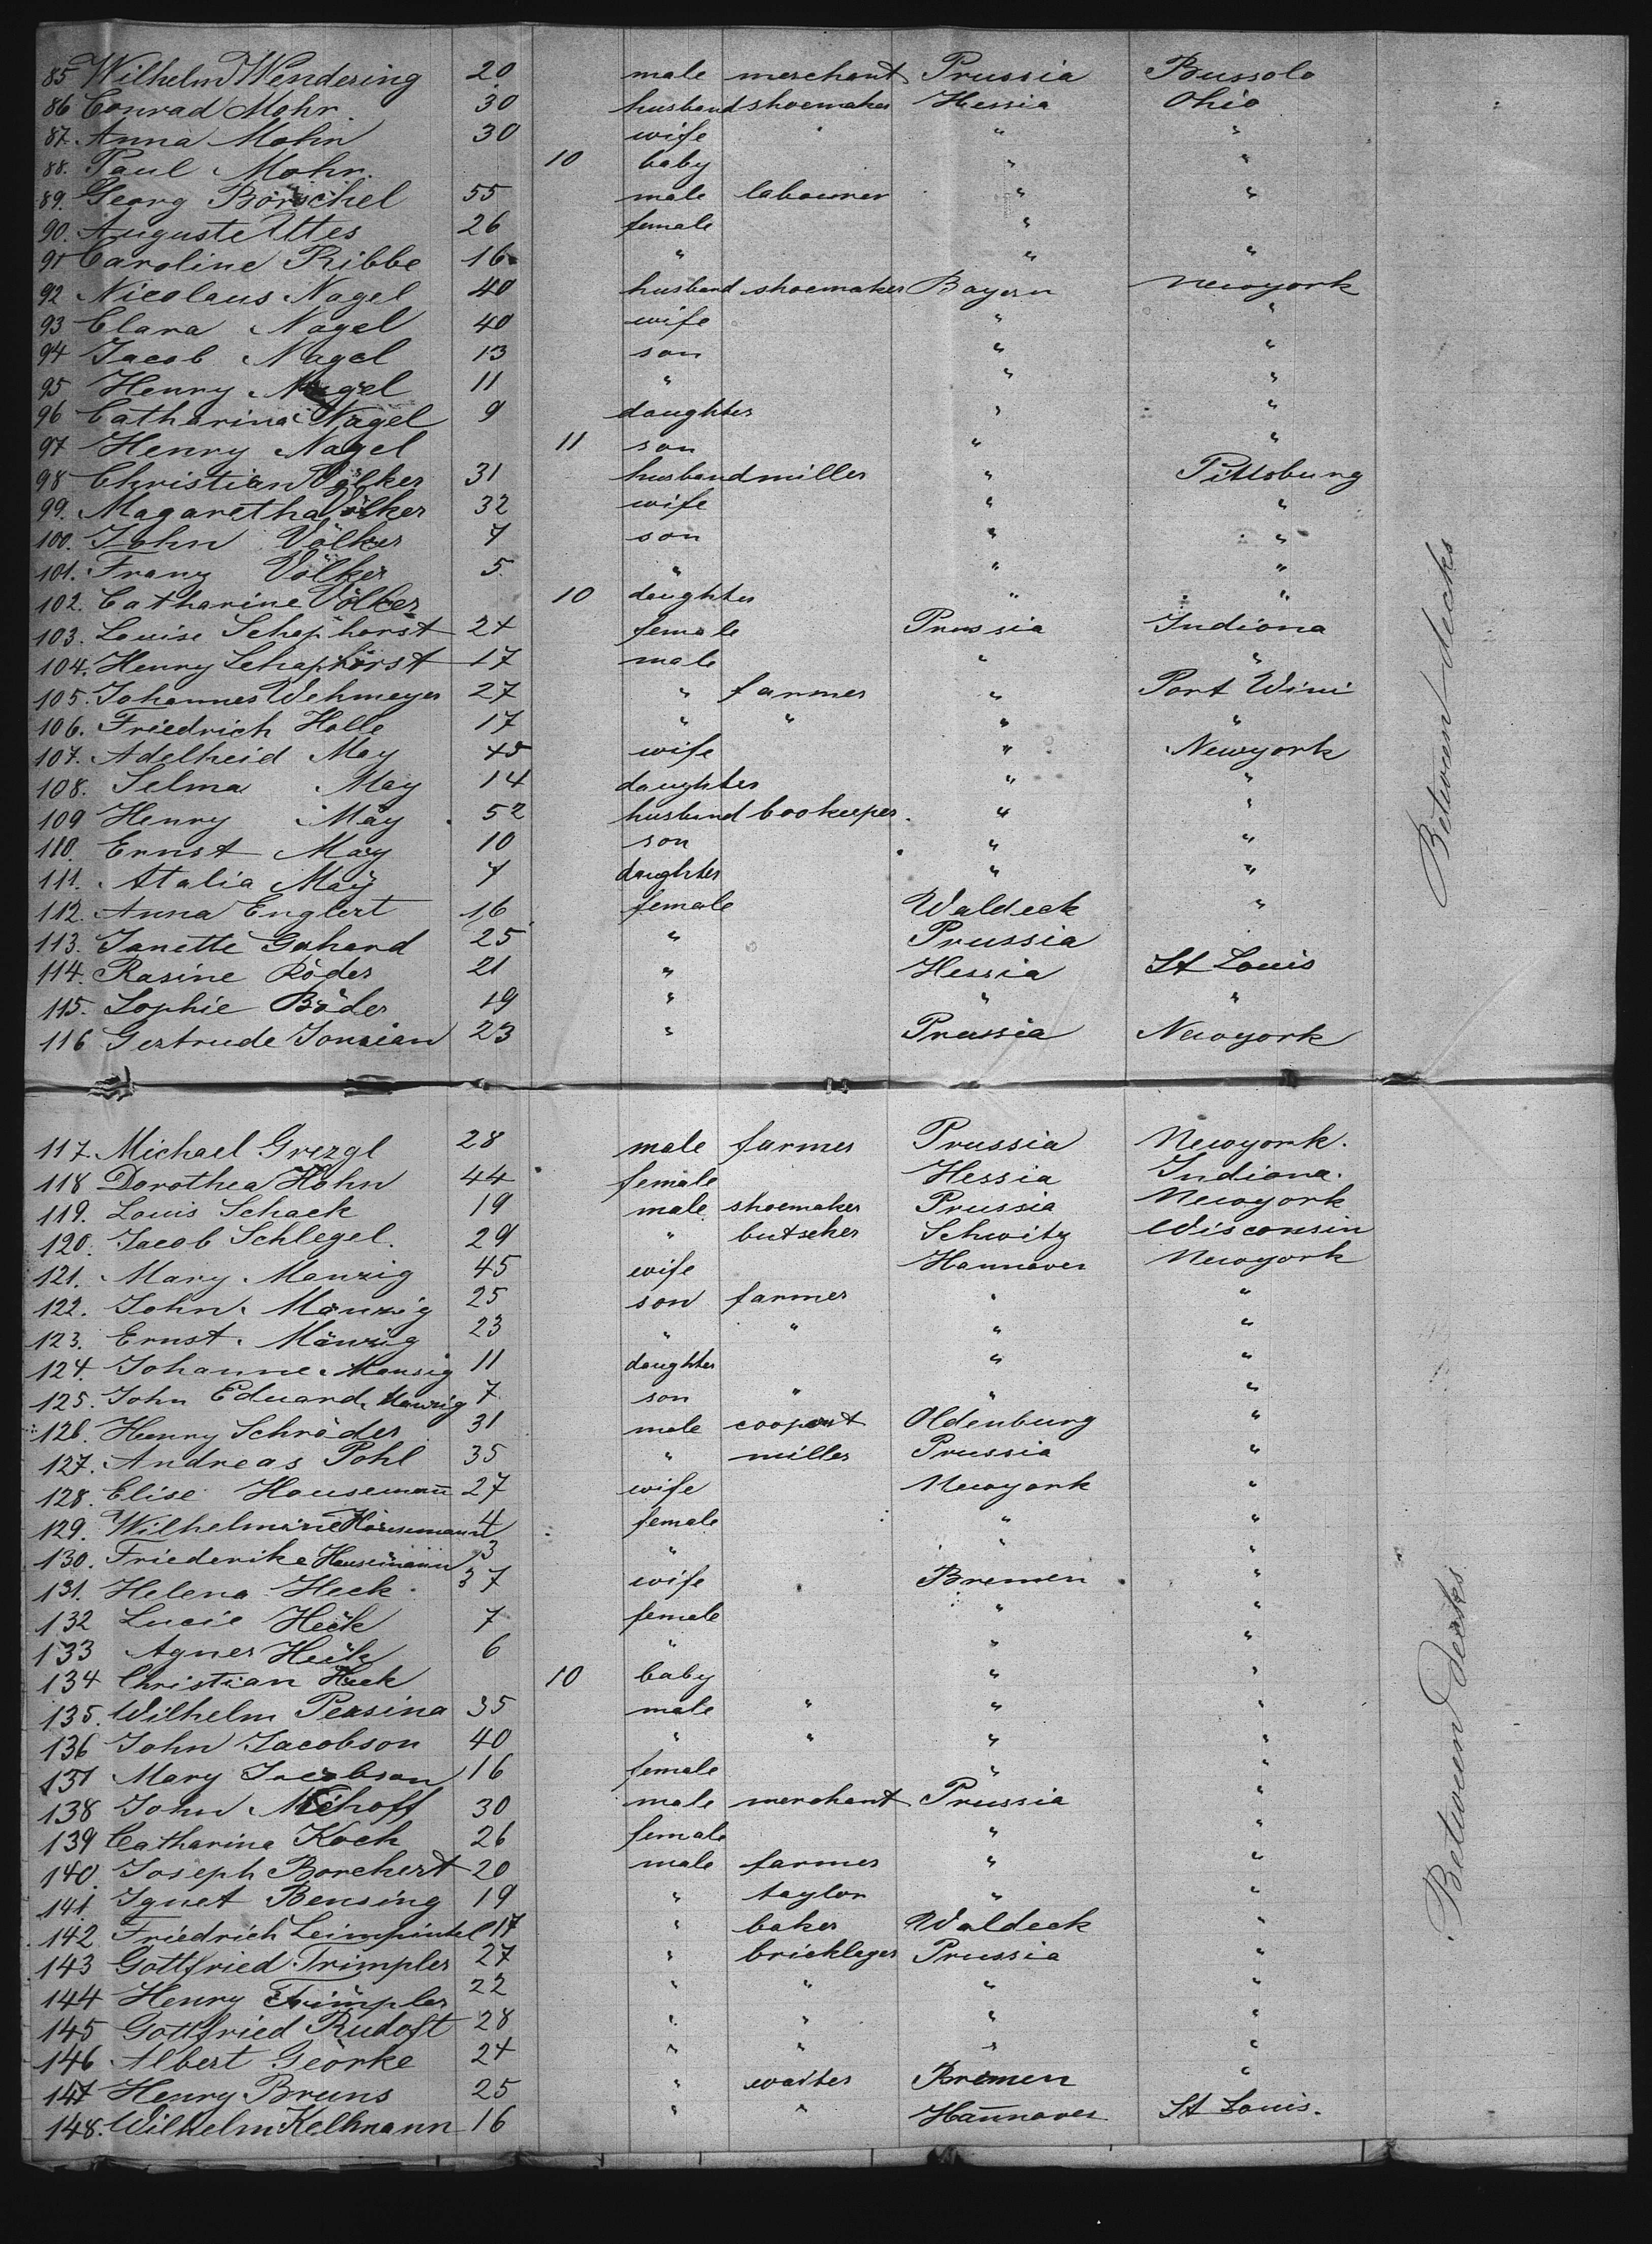 85 Wilhelm Wendering 20 male merchant Prussia Bussolo
86 Conrad Mohr. 30 husband shoemaker Hessia Ohio
87. Anna Mohr 30 wife " "
88. Paul Mohr. 10 baby " "
89. Georg Börschel 55 male labourer " "
90. Auguste Uttes 26 female "
91 Caroline Ribbe 16 " " "
92 Nicolaus Nagel 40 husband shoemaker Bayern Newyork
93 Clara Nagel 40 wife " "
94 Jacob Nagel 13 son " "
95 Henry Nagel 11 " " "
96 Catharina Nagel 9 daughter " "
97 Henry Nagel 11 son " "
98 Christian Völker 31 husband miller " Pittsburg
99. Magaretha Völker 32 wife " "
100. John Völker 7 son " "
101. Franz Völker 5 " " "
102. Catharine Völker 10 daughter " "
103. Louise Schaphorst 24 female Prussia Indiona
104. Henry Schaphorst 17 male " "
105. Johannes Wehmeyer 27 " farmer " Port Wini
106. Friedrich Holle 17 " " " "
107. Adelheid May 45 wife " Newyork
108. Selma May 14 daughter " "
109 Henry May 52 husband bookeeper. " "
110. Ernst May 10 son " "
111. Atalia May 7 daughter " "
112. Anna Englert 16 female Waldeck "
113. Janette Gahard 25 " Prussia
114. Rasine Röder 21 " Hessia St Louis
115. Sophie Böder 19 " " "
116 Gertrude Jonsian 23 " Prussia Newyork
Between decks
117. Michael Grezgl 28 male farmer Prussia Newyork.
118 Dorothea Hohn 44 female Hessia Indiana.
119. Louis Schack 19 male shoemaker Prussia Newyork
120. Jacob Schlegel. 29 " butscher Schwitz Wisconsin
121. Mary Manzig 45 wife Hannover Newyork
122. John Manzig 25 son farmer " "
123. Ernst Manzig 23 " " " "
124. Johanne Mansig 11 daughter " "
125. John Eduard Manzig 7 son " " "
126. Henry Schröder 31 male Oldenburg "
127. Andreas Pohl 35 " miller Prussia "
128. Elise Housemann 27 wife Newyork "
129. Wilhelmine Housemann 4 female " "
130. Friederike Housemann 3 " " "
131. Helena Heck 37 wife Bremen "
132 Lucie Heck 7 female " "
133 Agnes Heck 6 " " "
134 Christian Heck 10 baby " "
135. Wilhelm Persina 35 male " " "
136 John Jacobson 40 " " " "
137 Mary Jacobson 16 female " "
138 John Niehoff 30 male merchant Prussia "
139 Catharina Koch 26 female " "
140. Joseph Borchert 20 male farmer " "
141 Ignet Bensing 19 " taylor " "
142. Friedrich Leimpintel 17 " baker Waldeck "
143 Gottfried Trimpler 27 " bricklager Prussia "
144 Henry Trimpler 22 " " " "
145 Gottfried Rudoft 28 " " " "
146 Albert Georke 24 " " " "
147 Henry Bruns 25 " waiter Bremen "
148. Wilhelm Kellmann 16 " " Hannover St Louis.
Between decks